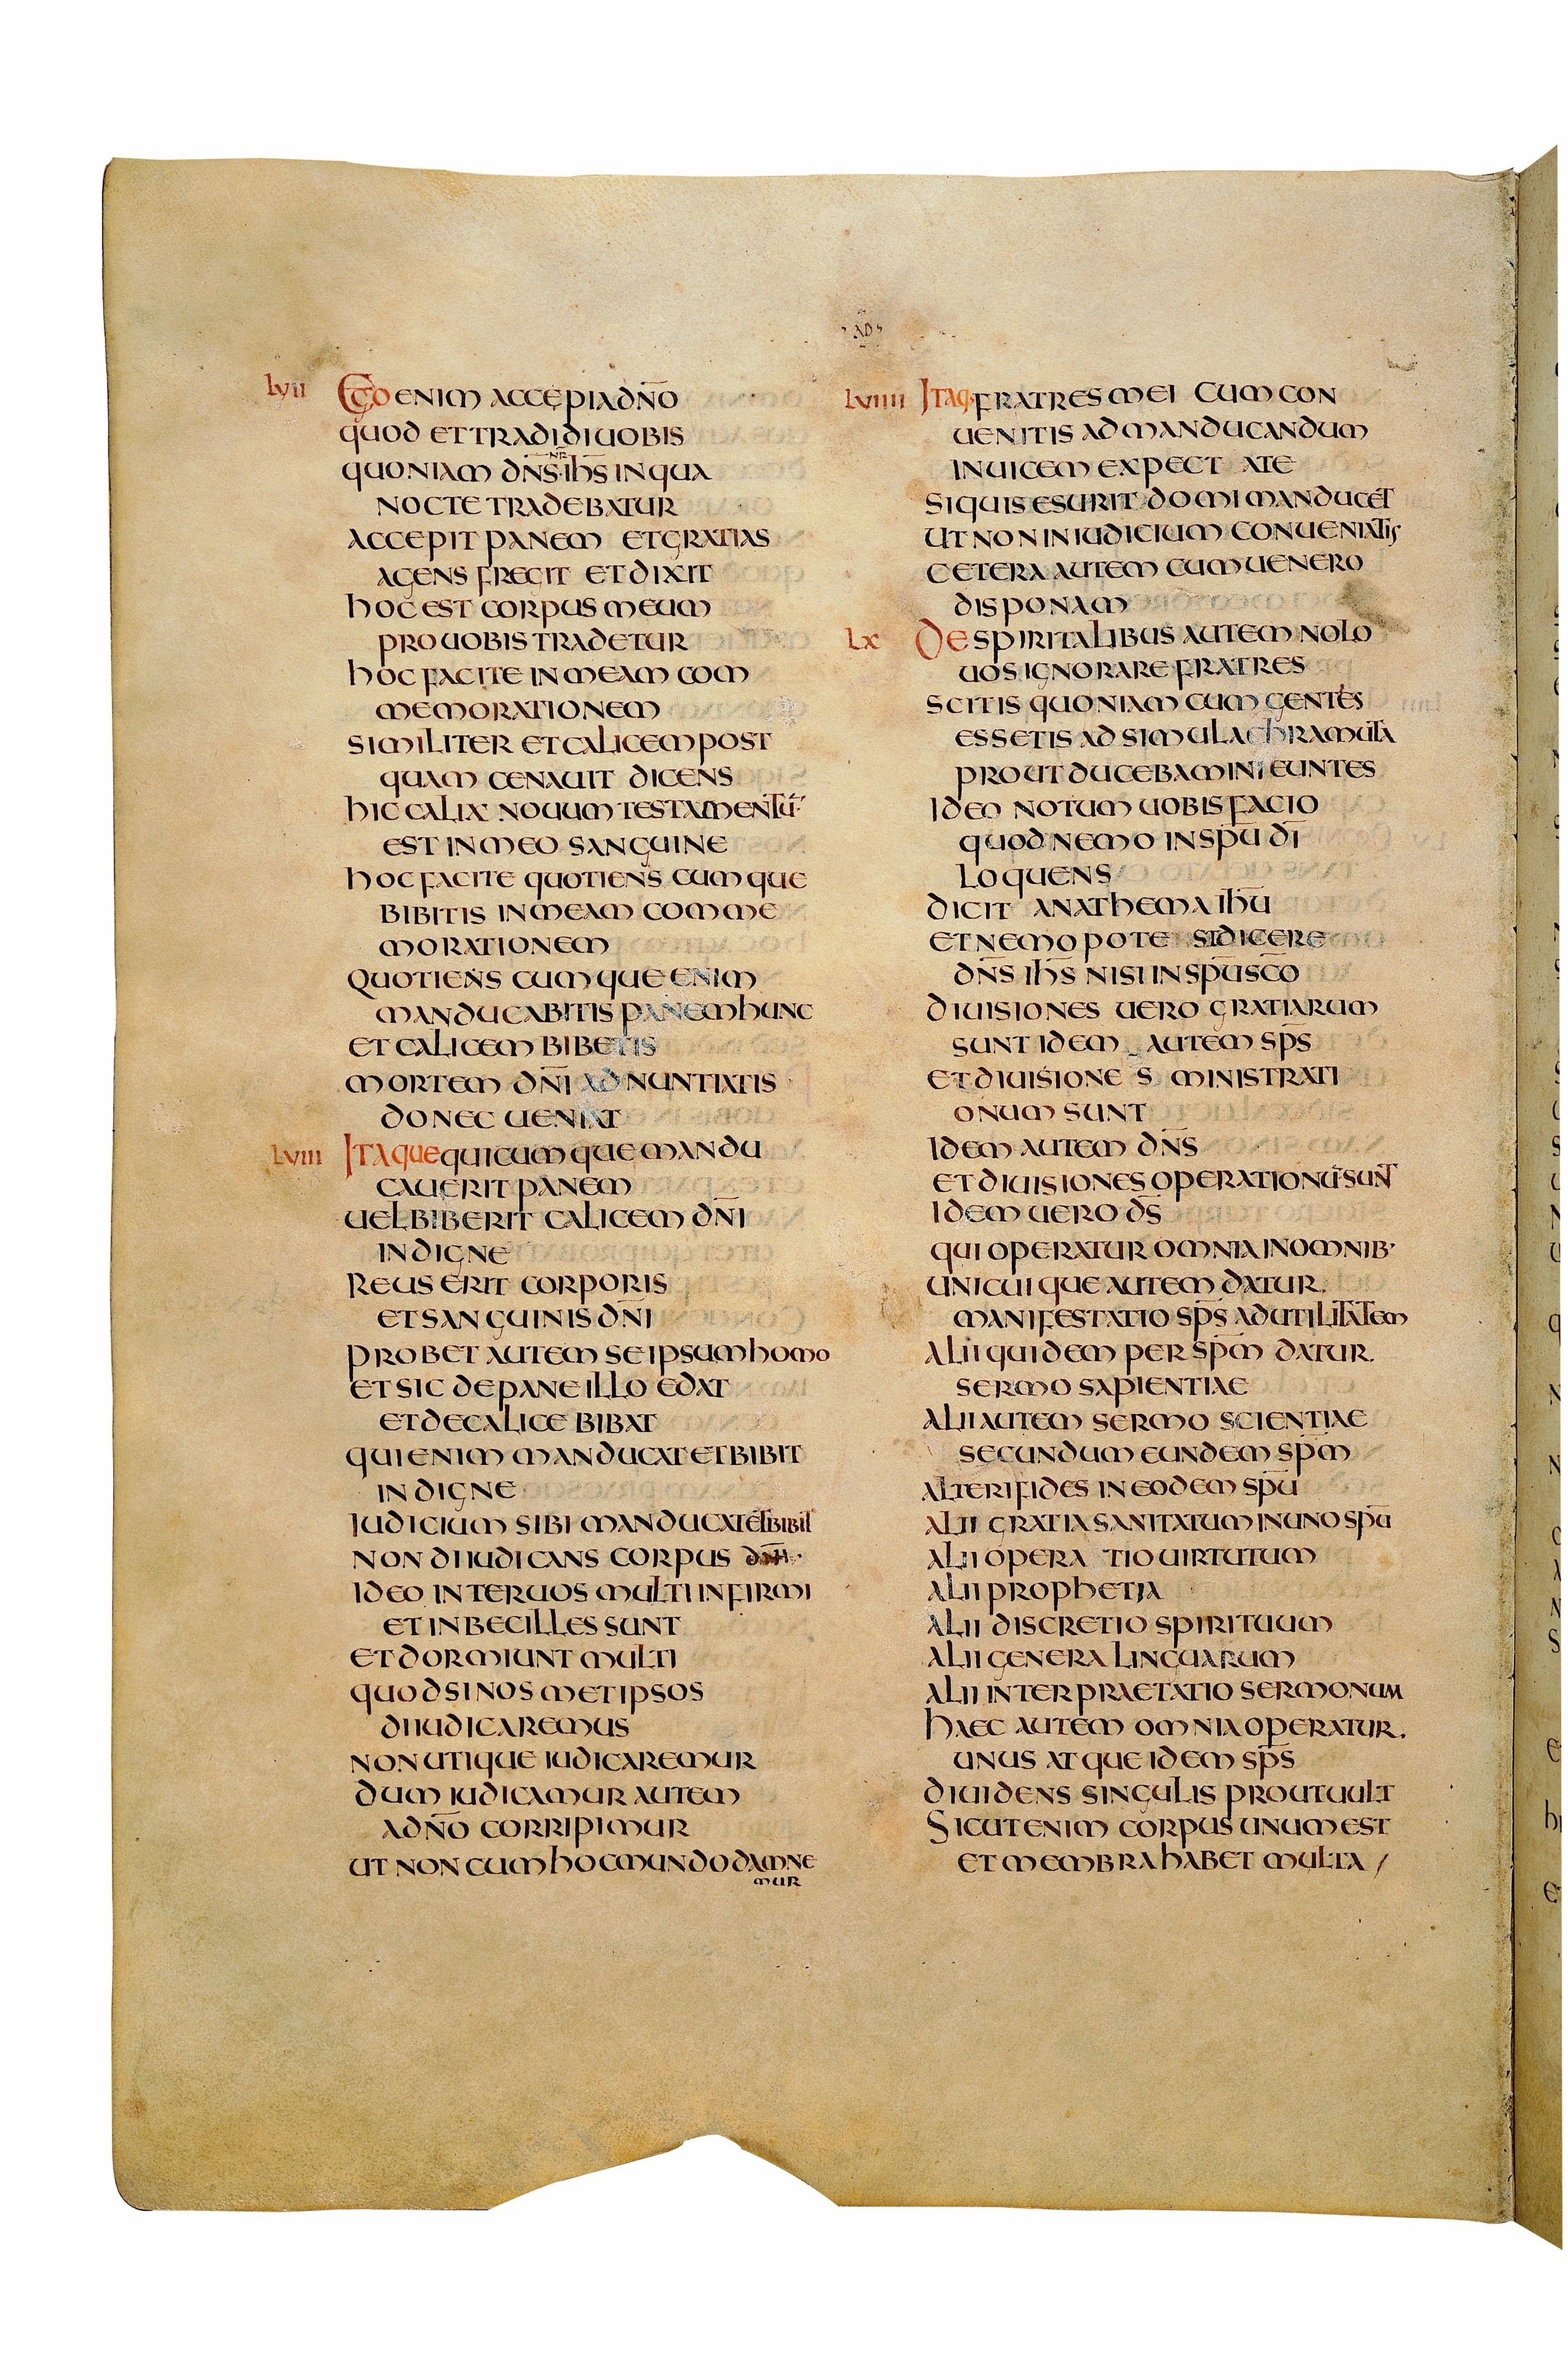 AD
LVII EGO ENIM ACCEPI A DN̄O
QUOD ET TRADIDI UOBIS
QUONIAM DN̄S NR̄ IH̄S IN QUA
NOCTE TRADEBATUR
ACCEPIT PANEM ET GRATIAS
AGENS FREGIT ET DIXIT
HOC EST CORPUS MEUM
PRO UOBIS TRADETUR
HOC FACITE IN MEAM COM
MEMORATIONEM
SIMILITER ET CALICEM POST
QUAM CENAUIT DICENS
HIC CALIX NOUUM TESTAMENTŪ
EST IN MEO SANGUINE
HOC FACITE QUOTIENS CUMQUE
BIBITIS IN MEAM COMME
MORATIONEM
QUOTIENS CUMQUE ENIM
MANDUCABITIS PANEM HUNC
ET CALICEM BIBETIS
MORTEM DN̄I ADNUNTIATIS
DONEC UENIAT
LVIII ITAQUE QUICUMQUE MANDU
CAUERIT PANEM
UEL BIBERIT CALICEM DN̄I
INDIGNE
REUS ERIT CORPORIS
ET SANGUINIS DN̄I
PROBET AUTEM SE IPSUM HOMO
ET SIC DE PANE ILLO EDAT
ET DE CALICE BIBAT
QUI ENIM MANDUCAT ET BIBIT
INDIGNE
IUDICIUM SIBI MANDUCAT ET BIBIT
NON DIIUDICANS CORPUS DN̄I
IDEO INTER UOS MULTI INFIRMI
ET INBECILLES SUNT
ET DORMIUNT MULTI
QUOD SI NOSMET IPSOS
DIIUDICAREMUS
NON UTIQUE IUDICAREMUR
DUM IUDICAMUR AUTEM
A DN̄O CORRIPIMUR
UT NON CUM HOC MUNDO DAMNE
MUR
LVIIII ITAQ· FRATRES MEI CUM CON
UENITIS AD MANDUCANDUM
INUICEM EXPECTATE
SI QUIS ESURIT DOMI MANDUCET
UT NON IN IUDICIUM CONUENIATIS
CETERA AUTEM CUM UENERO
DISPONAM
LX DE SPIRITALIBUS AUTEM NOLO
UOS IGNORARE FRATRES
SCITIS QUONIAM CUM GENTES
ESSETIS AD SIMULACHRA MUTA
PROUT DUCEBAMINI EUNTES
IDEO NOTUM UOBIS FACIO
QUOD NEMO IN SPŪ DĪ
LOQUENS
DICIT ANATHEMA IHŪ
ET NEMO POTEST DICERE
DN̄S IH̄S NISI IN SPŪ SCŌ
DIUISIONES UERO GRATIARUM
SUNT IDEM AUTEM SP̄S
ET DIUISIONES MINISTRATI
ONUM SUNT
IDEM AUTEM DN̄S
ET DIUISIONES OPERATIONŪ SUNT
IDEM UERO D̄S
QUI OPERATUR OMNIA IN OMNIB·
UNICUIQUE AUTEM DATUR
MANIFESTATIO SP̄S AD UTILITATEM
ALII QUIDEM PER SPM̄ DATUR
SERMO SAPIENTIAE
ALII AUTEM SERMO SCIENTIAE
SECUNDUM EUNDEM SPM̄
ALTERI FIDES IN EODEM SPŪ
ALII GRATIA SANITATUM IN UNO SPŪ
ALII OPERATIO UIRTUTUM
ALII PROPHETIA
ALII DISCRETIO SPIRITUUM
ALII GENERA LINGUARUM
ALII INTERPRAETATIO SERMONUM
HAEC AUTEM OMNIA OPERATUR
UNUS ATQUE IDEM SP̄S
DIUIDENS SINGULIS PROUT UULT
SICUT ENIM CORPUS UNUM EST
ET MEMBRA HABET MULTA /